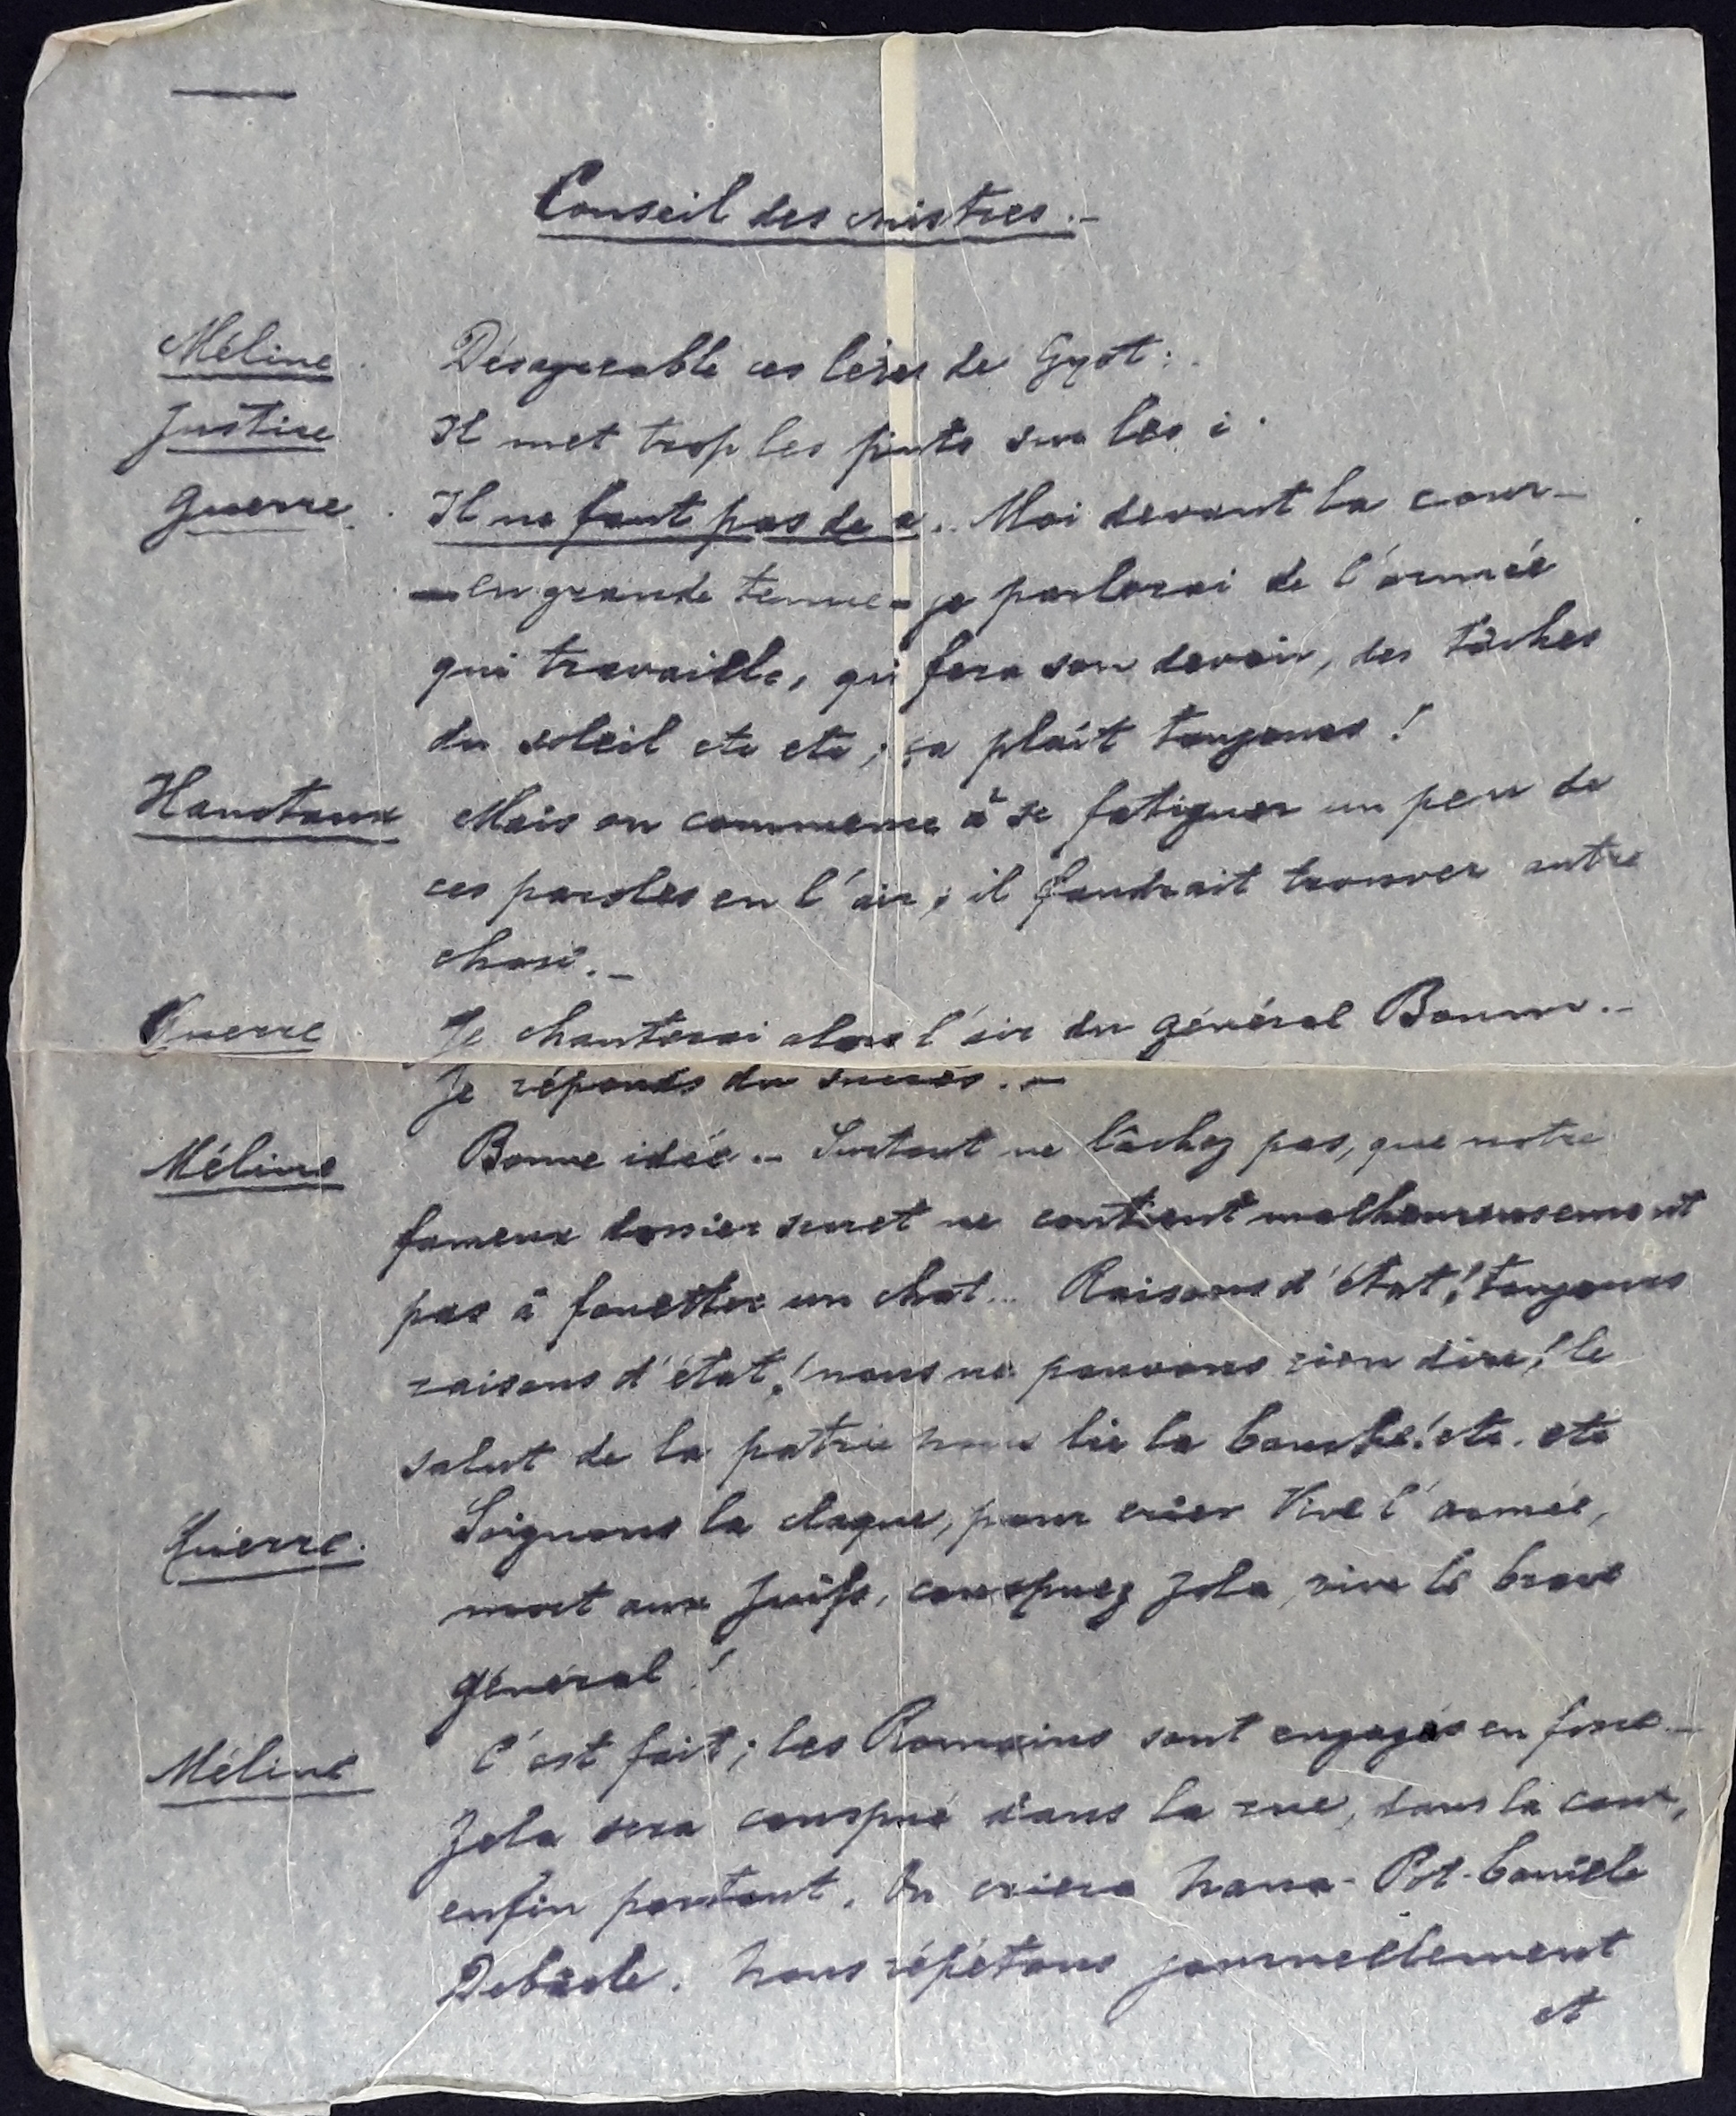 Conseil des mistres.-
Méline. Désagreable ces de Gyot.
Justice Il met trop les points sur les i.
Guerre. Il ne faut pas de .. Moi devant la cour-
- en grande tenue - je parlerai de l'armée
qui travaille, qui fera son devoir, des tâches
du soleil etc etc ; ça plaît toujours !
Hanotaux Mais on commence à se fatiguer un peu de
ces paroles en l'air ; il faudrait trouver autre
chose.-
Guerre Je chanterai alors l'air du général Boum.-
Je réponds du succès.-
Méline Bonne idée.- Surtout ne lâchez pas, que notre
fameux dossier secret ne contient malheureusement
pas à fouetter un chat... Raisons d'état! toujours
raisons d'état! nous ne pouvons rien dire! le
salut de la patrie nous lie la bouche! etc. etc
Guerre. Soignons la claque, pour crier Vive l'armée,
mort aux Juifs, conspuez Zola, vive le brave
général !
Méline C'est fait ; les Romains sont engagés en force-
Zola sera conspué dans la rue, dans la cour,
enfin partout. On criera Nana- Pot-bouille
Debâcle. Nous répétons journellement
et